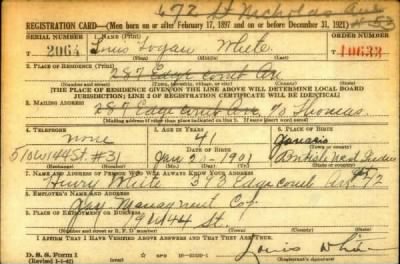 472 St Nicholas Ave
#53
REGISTRATION CARD—(Men born on or after February 17, 1897 and on or before December 31, 1921)
SERIAL NUMBER 1. NAME (Print) ORDER NUMBER
T 2064 Louis Logan White 10633
(First) (Middle) (Last)
2. PLACE OF RESIDENCE (Print)
287 Edgecomb Ave
(Number and street) (Town, township, village, or city) (County) (State)
[THE PLACE OF RESIDENCE GIVEN ON THE LINE ABOVE WILL DETERMINE LOCAL BOARD
JURISDICTION; LINE 2 OF REGISTRATION CERTIFICATE WILL BE IDENTICAL]
3. MAILING ADDRESS
287 Edgecomb Ave c/o Thomas
[Mailing address if other than place indicated on line 2. If same insert word same]
4. TELEPHONE 5. AGE IN YEARS 6. PLACE OF BIRTH
none 41 Jamaica
DATE OF BIRTH
510 W 144 St. #31 Jan 2 - 1901 British West Indies
7. NAME AND ADDRESS OF PERSON WHO WILL ALWAYS KNOW YOUR ADDRESS
Henry White 393 Edgecomb Ave
8. EMPLOYER'S NAME AND ADDRESS
Managment Co
9. PLACE OF EMPLOYMENT OR BUSINESS
W 144 St.
(Number and street or R. F. D. number) (Town) (County) (State)
I AFFIRM THAT I HAVE VERIFIED ABOVE ANSWERS AND THAT THEY ARE TRUE.
D. S. S. Form 1
Louis White